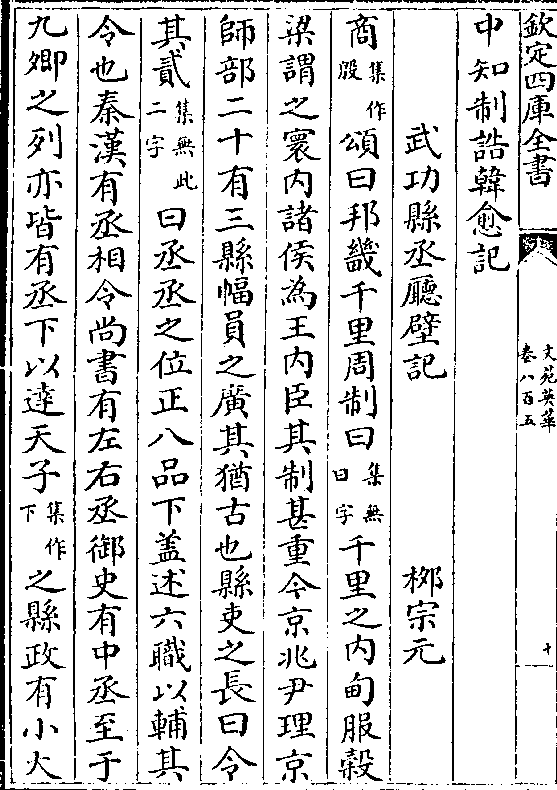 欽定四庫全書
文苑英華
卷八百五
十
中知制誥韓愈記
武功縣丞廳壁記 栁宗元
商集作殷頌曰邦畿千里周制曰集無曰字千里之内甸服穀
梁謂之寰内諸侯為王内臣其制甚重今京兆尹理京
師部二十有三縣幅員之廣其猶古也縣吏之長曰令
其貳集無此二字曰丞丞之位正八品下盖述六職以輔其
令也秦漢有丞相令尚書有左右丞御史有中丞至于
九卿之列亦皆有丞下以逹天子集作下之縣政有小大